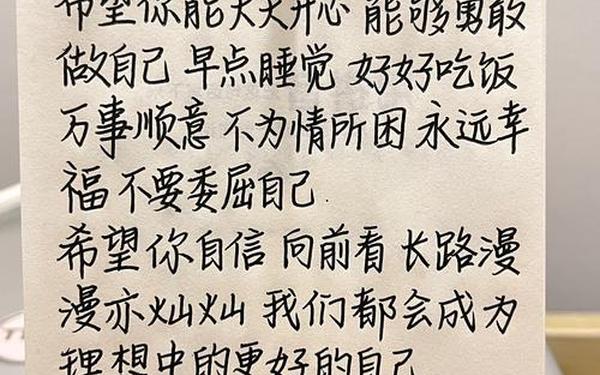 希望你能天天开心 能够勇敢
做自己 早点睡觉 好好吃饭
万事顺意 不为情所困 永远幸
福 不要委屈自己.
希望你自信 向前看 长路漫
漫亦灿灿 我们都会成为
理想中的更好的自己